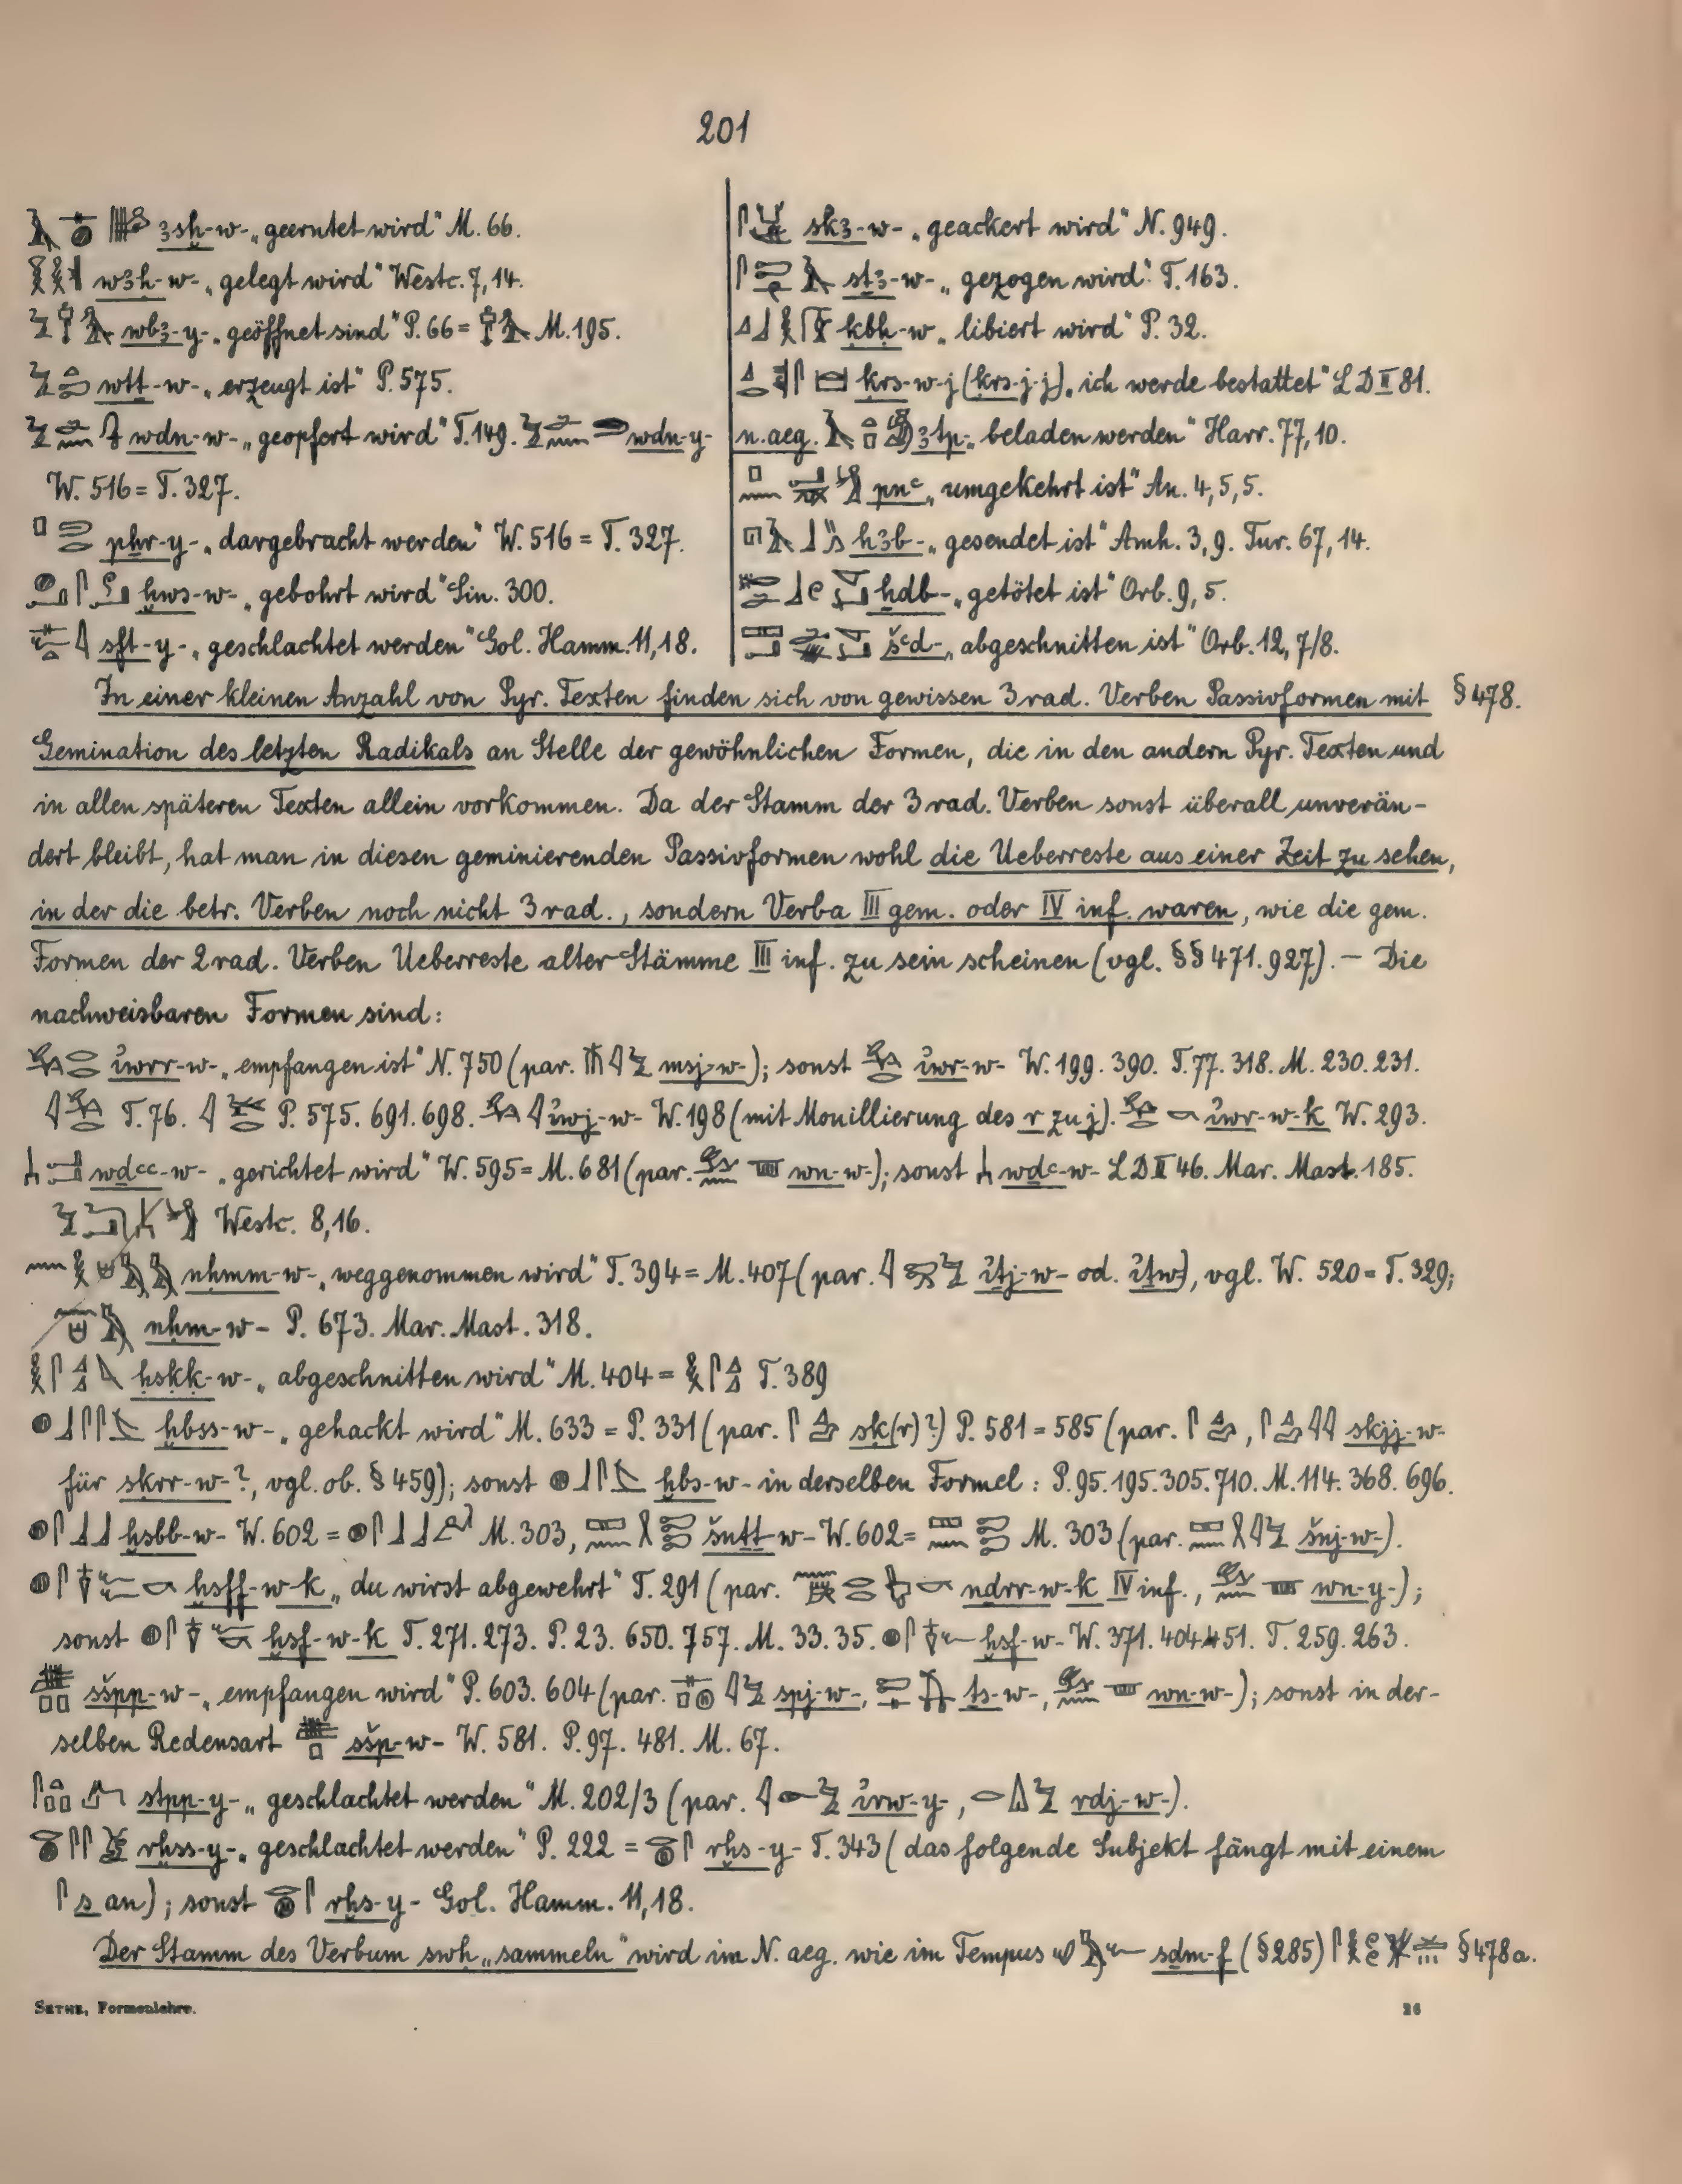 201
ꜣsḫ-w- „geerntet wird“ M. 66.
wꜣḥ-w- „gelegt wird“ Westc. 7,14.
wbꜣ-y- „geöffnet sind“ P. 66 = M. 195.
wtt-w- „erzeugt ist“ P. 575.
wdn-w- „geopfert wird“ T. 149. wdn-y-
W. 516 = T. 327.
pḥr-y- „dargebracht werden“ W. 516 = T. 327.
ḫws-w- „gebohrt wird“ Sin. 300.
sft-y- „geschlachtet werden“ Gol. Hamm. 11,18.
skꜣ-w- „geackert wird“ N. 949.
stꜣ-w- „gezogen wird“ T. 163.
ḳbḥ-w „libiert wird“ P. 32.
ḳrs-w-j (ḳrs-j-j) „ich werde bestattet“ LD II 81.
n.aeg. ꜣtp- „beladen werden“ Harr. 77,10.
pnꜥ „umgekehrt ist“ An. 4,5,5.
hꜣb- „gesendet ist“ Amh. 3,9. Tur. 67,14.
ḫdb- „getötet ist“ Orb. 9,5.
šꜥd- „abgeschnitten ist“ Orb. 12,7/8.
In einer kleinen Anzahl von Pyr. Texten finden sich von gewissen 3rad. Verben Passivformen mit § 478.
Gemination des letzten Radikals an Stelle der gewöhnlichen Formen, die in den andern Pyr. Texten und
in allen späteren Texten allein vorkommen. Da der Stamm der 3rad. Verben sonst überall unverän-
dert bleibt, hat man in diesen geminierenden Passivformen wohl die Ueberreste aus einer Zeit zu sehen,
in der die betr. Verben noch nicht 3rad., sondern Verba III gem. oder IV inf. waren, wie die gem.
Formen der 2rad. Verben Ueberreste alter Stämme III inf. zu sein scheinen (vgl. §§ 471. 927). — Die
nachweisbaren Formen sind:
i҆wrr-w- „empfangen ist“ N. 750 (par. msj-w-); sonst i҆wr-w- W. 199. 390. T. 77. 318. M. 230. 231.
T. 76. P. 575. 691. 698. i҆wj-w- W. 198 (mit Mouillierung des r zu j). i҆wr-w-k W. 293.
wdꜥꜥ-w- „gerichtet wird“ W. 595 = M. 681 (par. wn-w-); sonst wdꜥ-w- LD II 46. Mar. Mast. 185.
Westc. 8,16.
nḥmm-w- „weggenommen wird“ T. 394 = M. 407 (par. i҆tj-w- od. i҆tw-), vgl. W. 520 = T. 329;
nḥm-w- P. 673. Mar. Mast. 318.
ḥsḳḳ-w- „abgeschnitten wird“ M. 404 = T. 389
ḫbss-w- „gehackt wird“ M. 633 = P. 331 (par. sk(r)?) P. 581 = 585 (par. , skjj-w-
für skrr-w-?, vgl. ob. § 459); sonst ḫbs-w- in derselben Formel: P. 95. 195. 305. 710. M. 114. 368. 696.
ḫsbb-w- W. 602 = M. 303, šntt-w- W. 602 = M. 303 (par. šnj-w-).
ḫsff-w-k „du wirst abgewehrt“ T. 291 (par. ndrr-w-k IV inf., wn-y-);
sonst ḫsf-w-k T. 271. 273. P. 23. 650. 757. M. 33. 35. ḫsf-w- W. 371. 404. 451. T. 259. 263.
sšpp-w- „empfangen wird“ P. 603. 604 (par. spj-w-, ts-w-, wn-w-); sonst in der-
selben Redensart sšp-w- W. 581. P. 97. 481. M. 67.
stpp-y- „geschlachtet werden“ M. 202/3 (par. i҆rw-y-, rdj-w-).
rḫss-y- „geschlachtet werden“ P. 222 = rḫs-y- T. 343 (das folgende Subjekt fängt mit einem
s an); sonst rḫs-y- Gol. Hamm. 11,18.
Der Stamm des Verbum swh „sammeln“ wird im N. aeg. wie im Tempus sdm-f (§ 285) § 478a.
SETHE, Formenlehre. 26